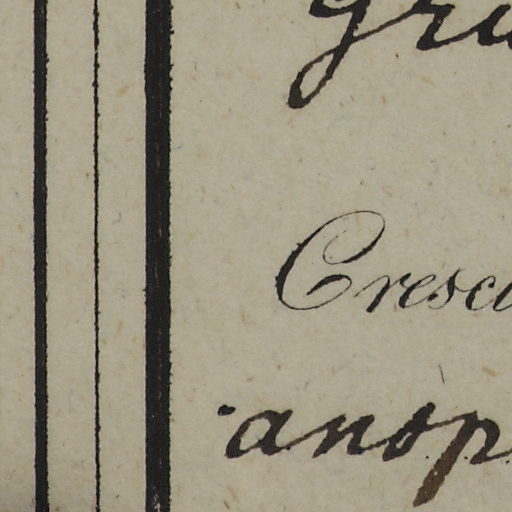 gru
Cresc
anop